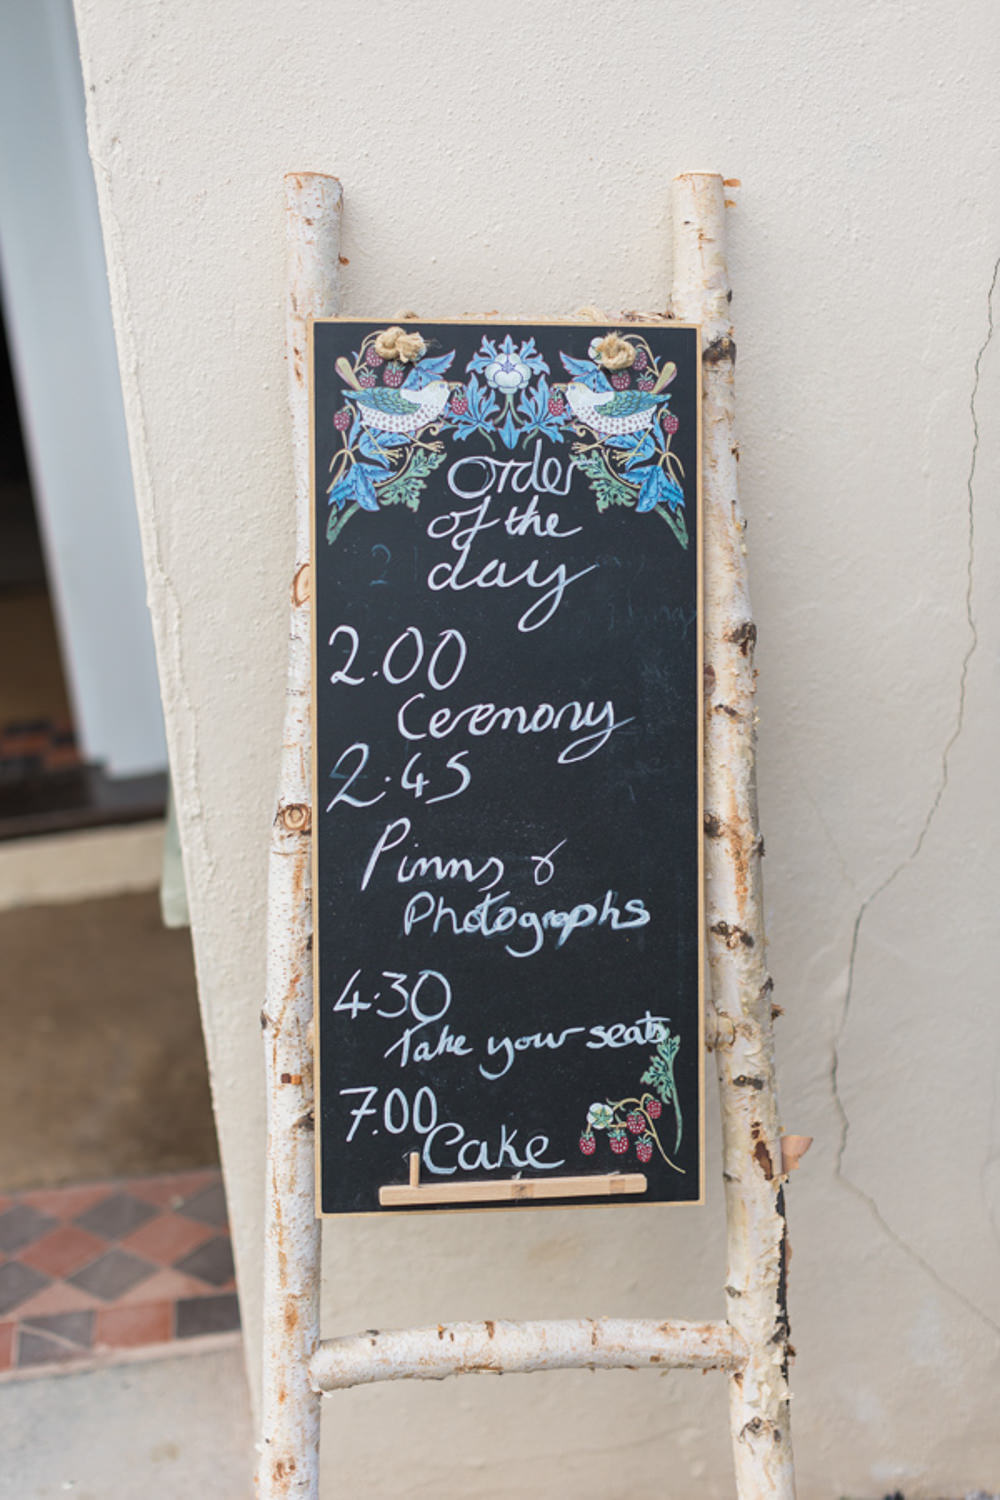 Order
of the
day
2.00
Ceremony
2.45
Pimms &
Photographs
4.30
Take your seats
7.00
Cake